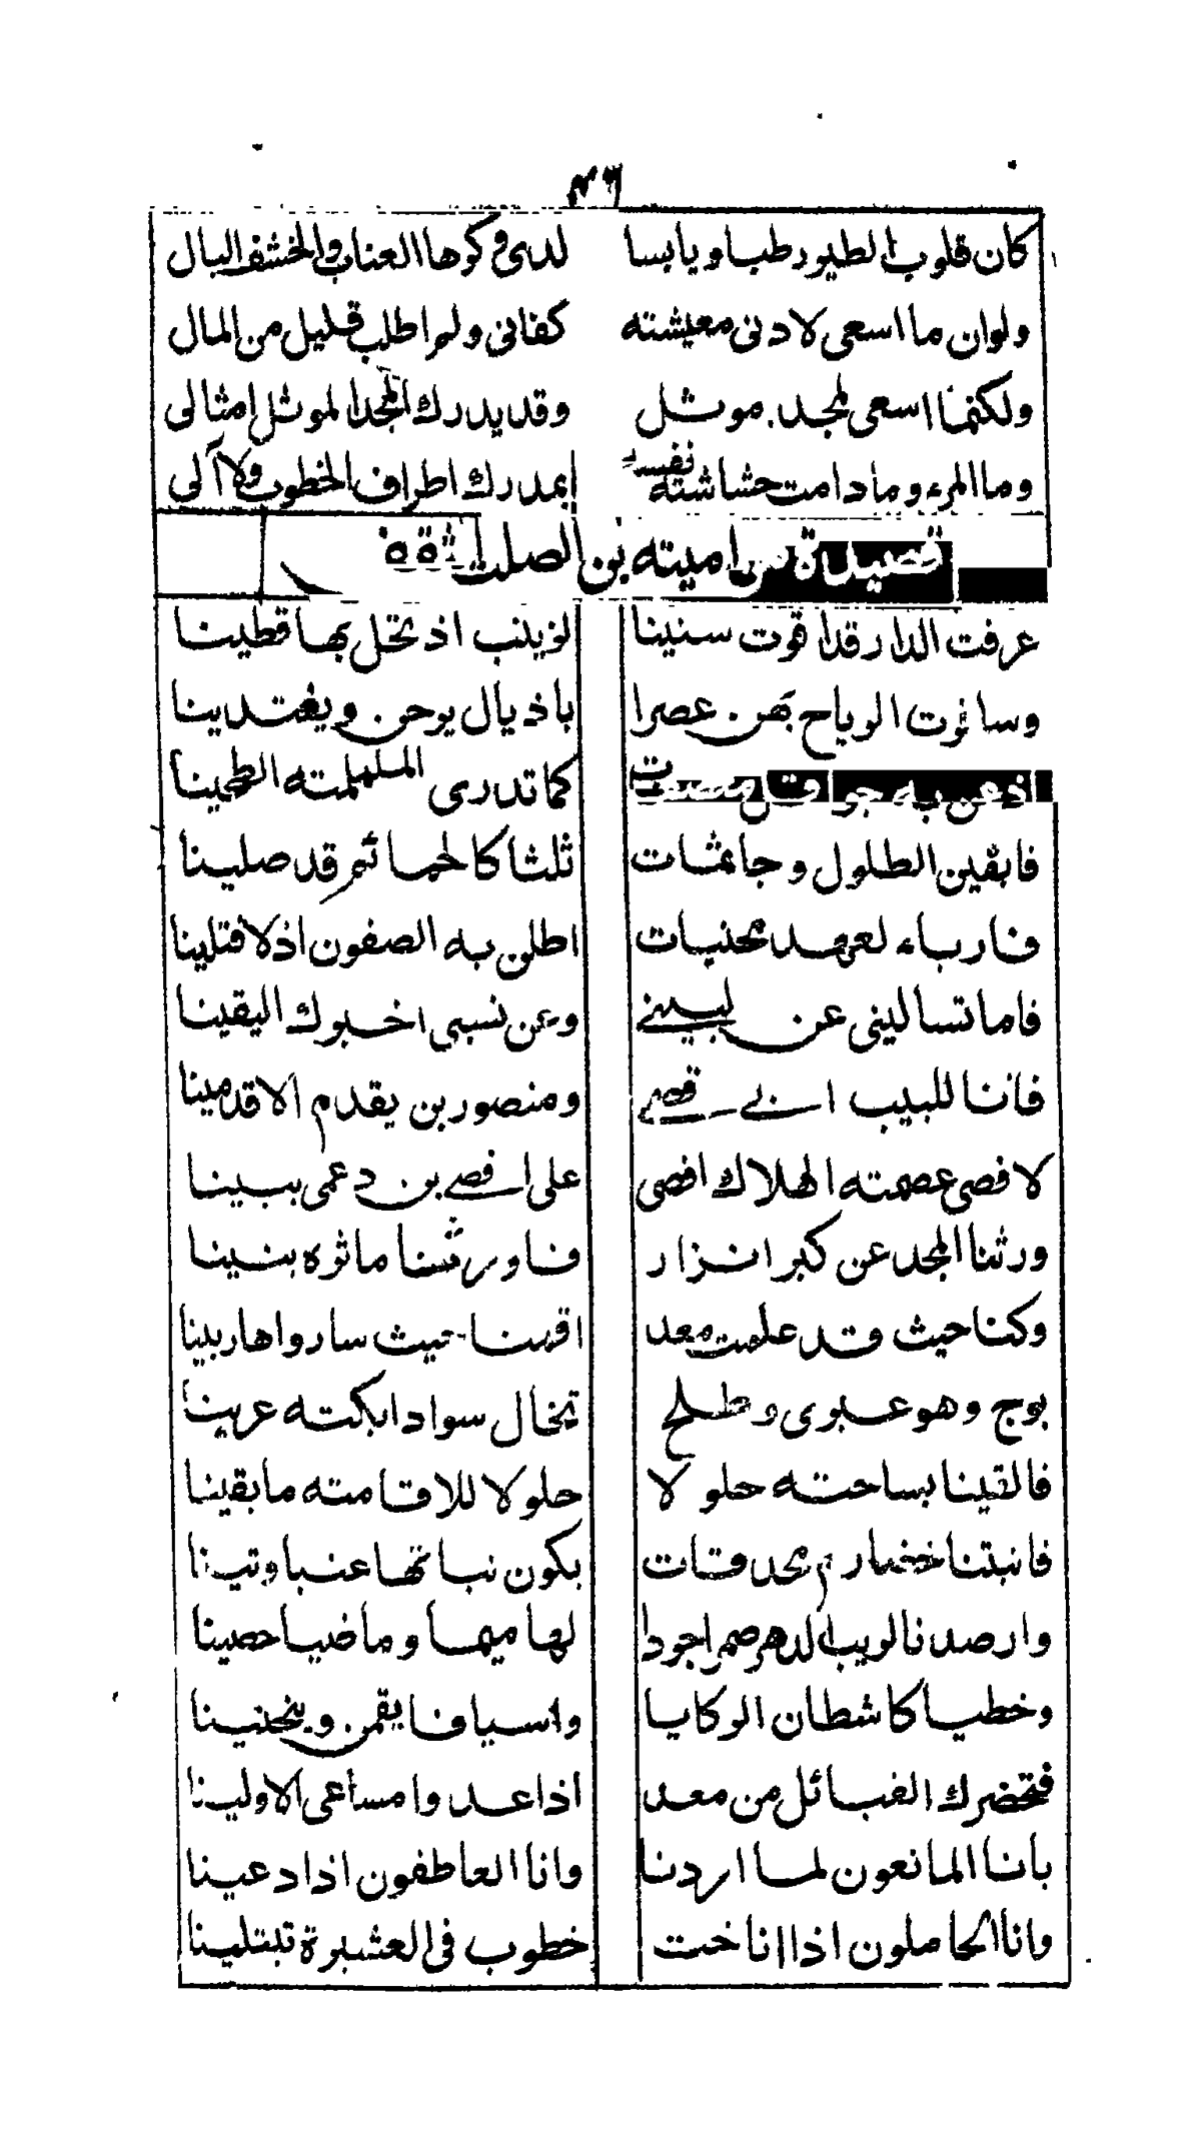 ٣٦
كان قلوب الطيور طبا ويابسا لدى وكرها العناب والخشف البال
ولوان ما اسعى لادنى معيشته كفانى ولم اطلب قليل من المال
ولكنما اسعى لمجد موثل وقد يدرك المجد الموثل امثالى
وما المرء وما دامت حشاشته نفسه بمدرك اطراف الخطوب ولا آلى
قصيدة من اميته بن الصلت
عرفت الدار قد اقوت سنينا لزينب اذ تحل بها قطينا
وسافرت الرياح بهن عصرا باذيال يرحن ويغتدينا
كما تدرى الململمته الطحينا
فابقين الطلول وجاثمات ثلثا كالحمائم قد صلينا
فارباء لعهد محنيات اطلن به الصفون اذلافتلينا
فاما تسالينى عن لبينى وعن نسبى اخبرك اليقينا
فاننا للبيب ابى قصى ومنصور بن يقدم الاقدمينا
لافصى عصمته الهلاك افصى على افصى بن دعمى ببينا
ورثنا المجد عن كبرا نزار فاورثنا ماثره بنينا
وكنا حيث قد علمت معد اقمنا حيث ساروا هاربينا
بوج وهو عبرى وطلح تخال سواد ابكته عرينا
فالقينا بساحته حلولا حلولا للاقامته مابقينا
فانبتنا خضارم محدقات يكون نباتها عنبا وتينا
وارصدنا لريب الدهر صمرا جودا لها ميما وماضيا حصينا
وخطيا كاشطان الركايا واسيافا يقمن وينحنينا
فتحضرك القبائل من معد اذا عدوا مساعى الاولينا
بانا المانعون لما اردنا وانا العاطفون اذا دعينا
وانا الحاملون اذا اناخت خطوب فى العشيرة تبتلينا